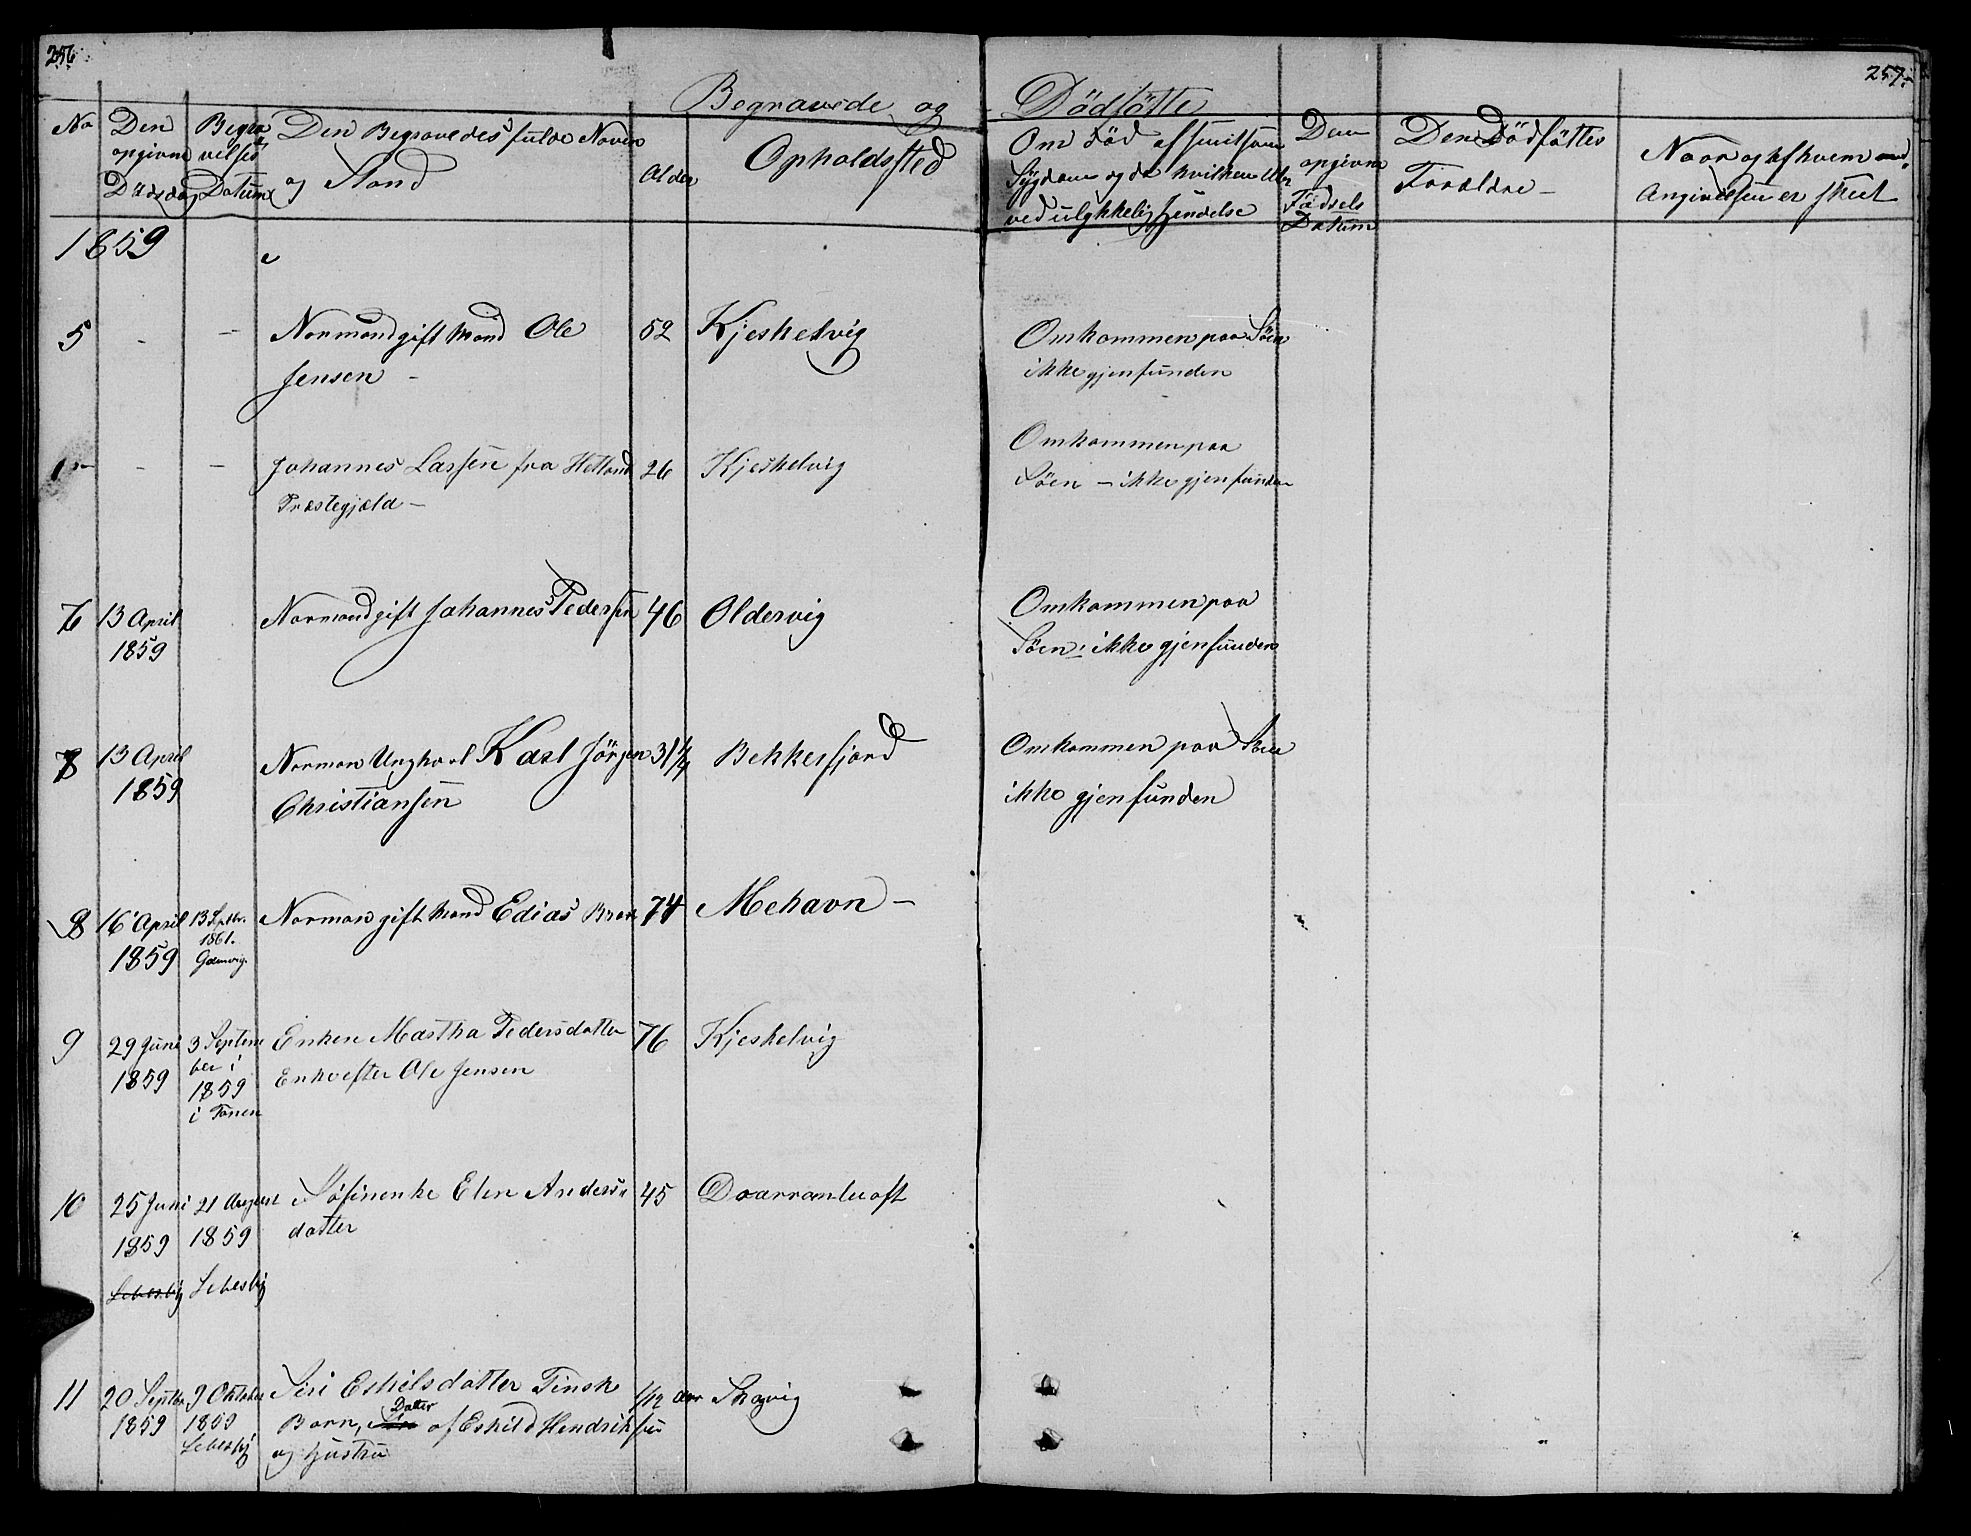 256
257.
Begravede og Dödfötte
No
Den opgivne Dödsdag
Begravelses Datum
Den Begravedes fulde Navn og Stand
Alder
Opholdssted
Om död af smitsom Sÿgdom og da hvilken eller ved ulÿkkelig Hendelse
Den opgivne Födsels Datum
Den Dödfötte's Forældre -
Naar og af hvem Angivelsen er skeet
1859
5 - - Normand gift Mand Ole 52 Kjeskelvig Omkommen paa Söen
Jensen - ikke gjenfunden
- - Johannes Larsen fra Hetland 26 Kjeskelvig Omkommen paa
Præstegjæld - Söen - ikke gjenfunden
13 April Normand gift Johannes Pedersen 46 Oldervig Omkommen paa
1859 Söen ikke gjenfunden
13 April Norman Ungkarl Karl Jörgen 31 1/4 Bekkerfjord Omkommen paa Söen
1859 Christiansen ikke gjenfunden
8 16 April 13 Septbr. Norman gift Mand Edias 74 Mehavn -
1859 1861. Gamvig.
9 29 Juni 3 Septem Enken Martha Pedersdatter 76 Kjeskelvig
1859 ber i Enke efter Ole Jensen
1859
i Tanen
10 25 Juni 21 August Söfinenke Elen Anders- 45
1859 1859 datter
Lebesbÿ Lebesbÿ
11 20 Septbr 9 Oktober Siri Eskilsdatter Finsk 1/12 aar Skavig
1859 1859 Barn, Datter af Eskild Hendriksen
Lebesbÿ og Hustru